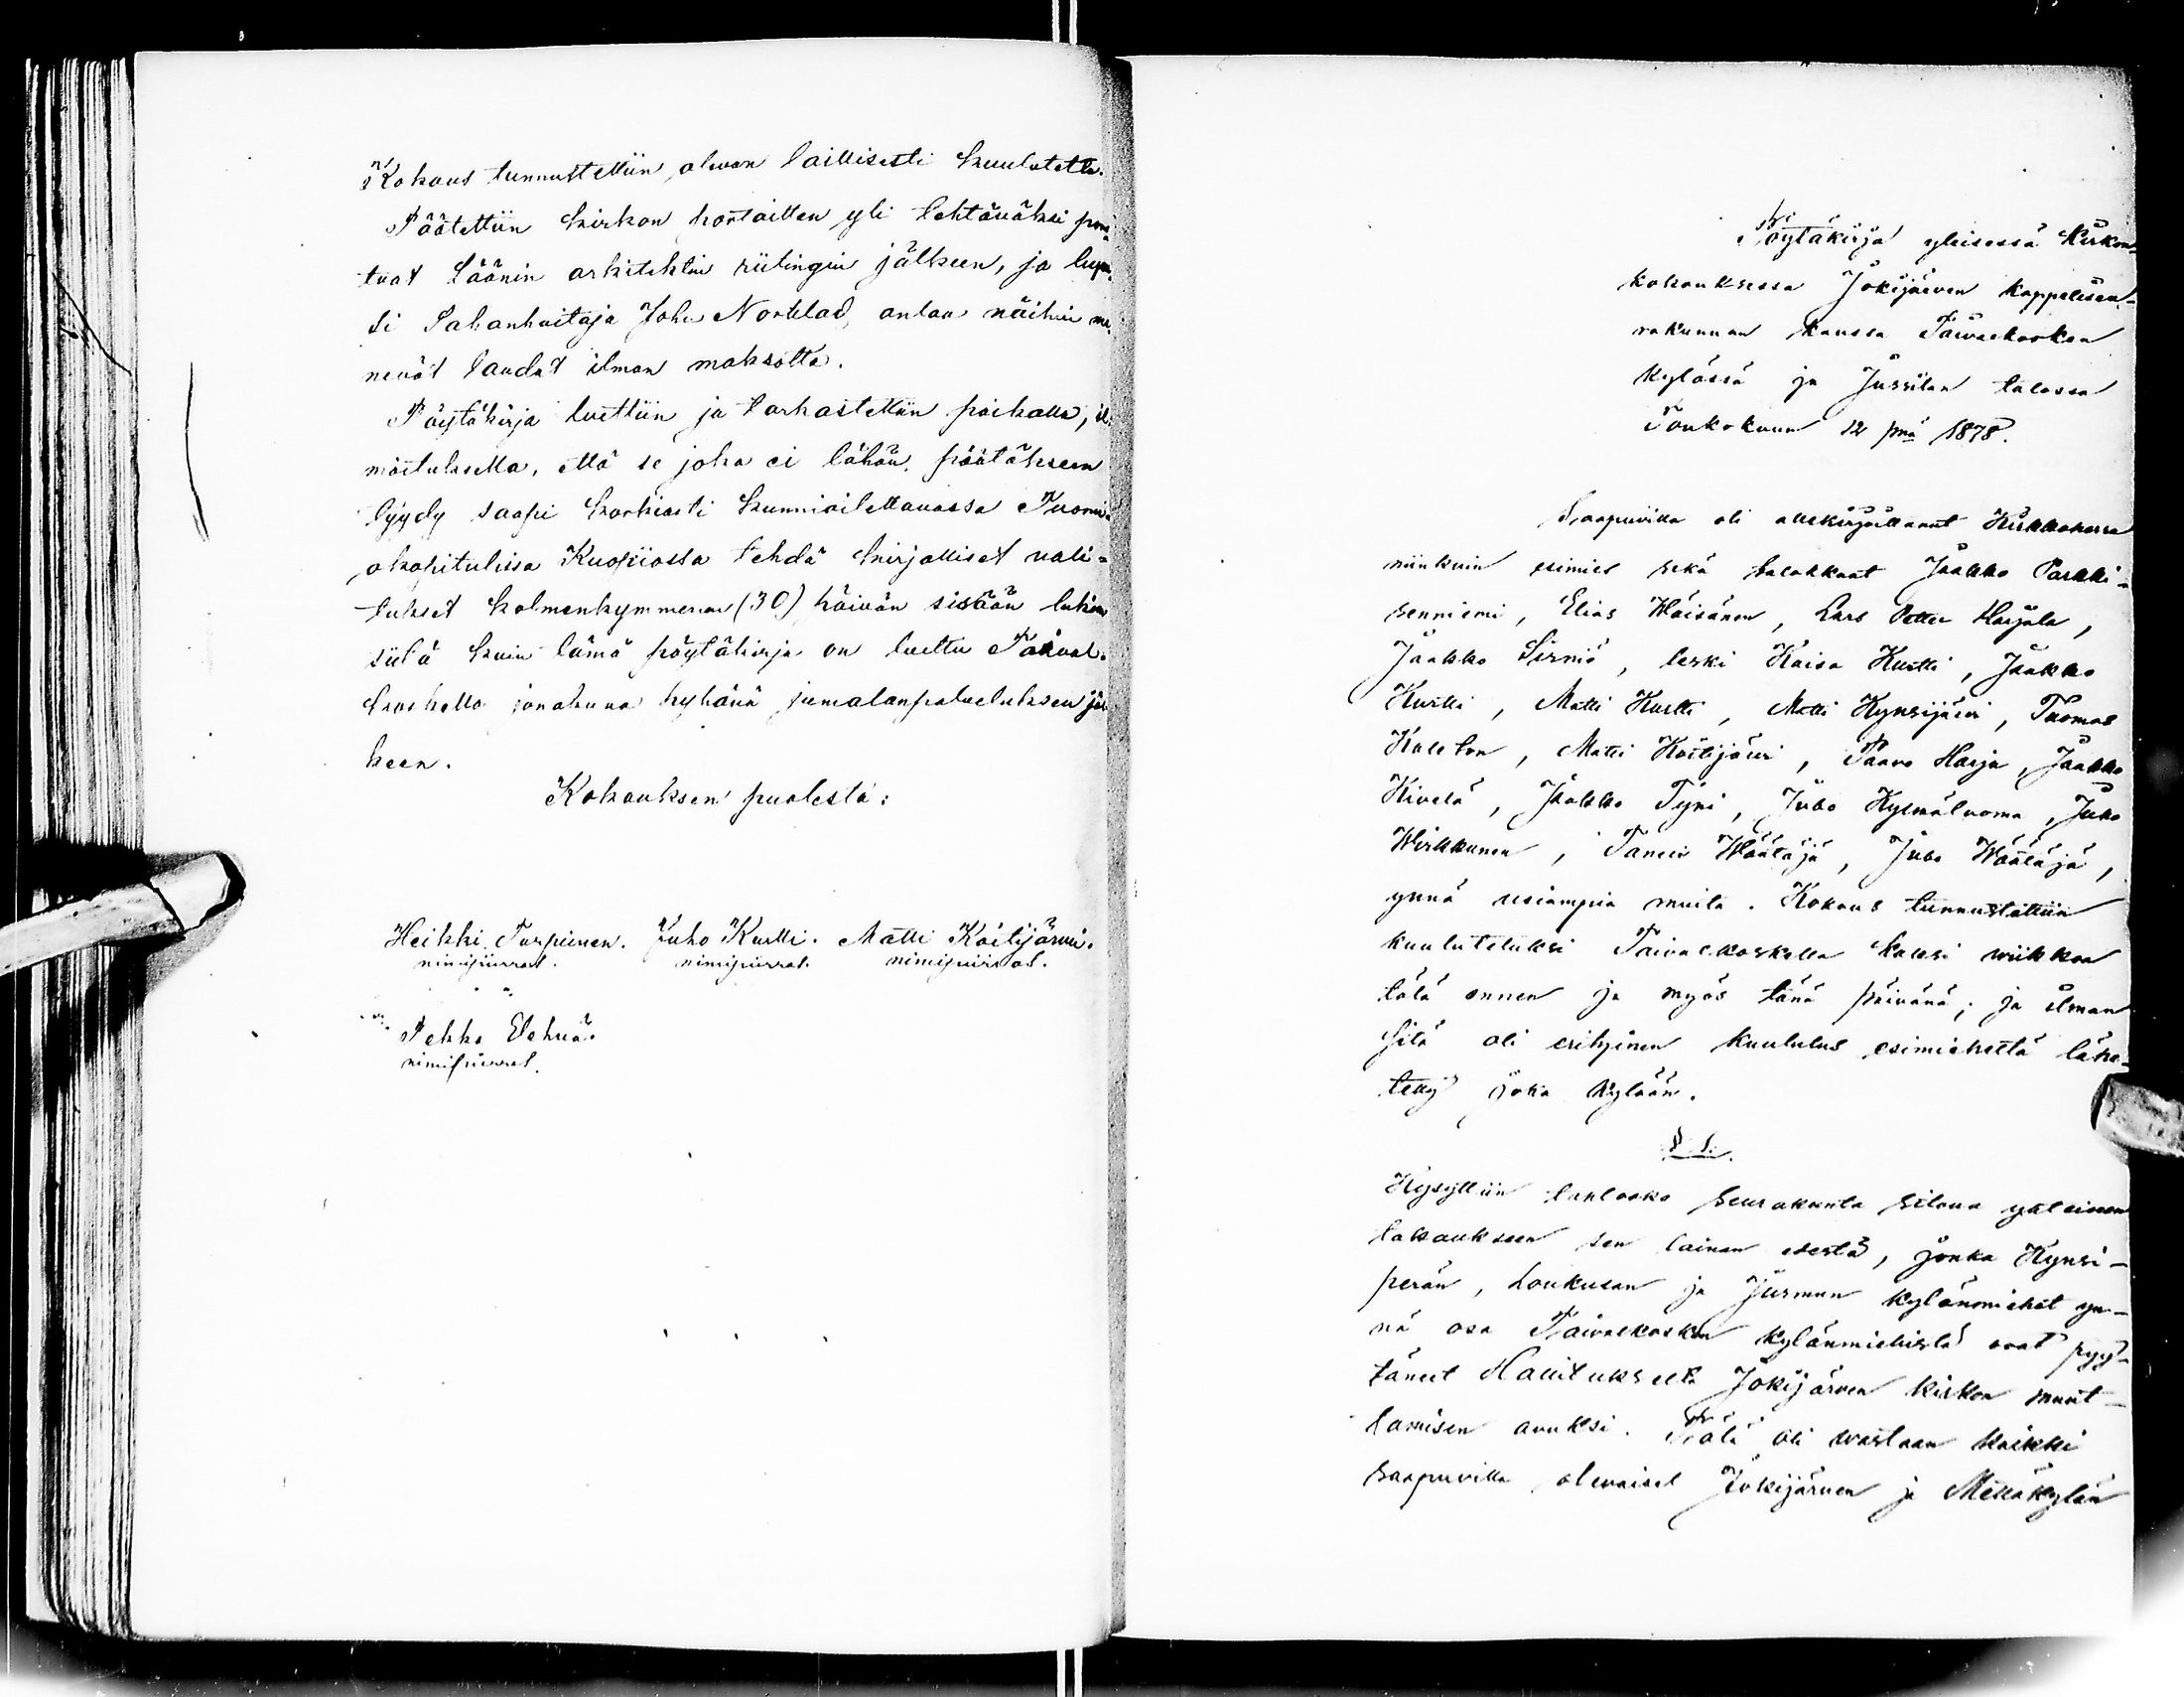 Kokous tunnustettiin olevan laillisesti kuulutettu.
Päätettiin kirkon portaitten yli tehtäväksi por-
tvat Läänin arkitehtin riitingin jälkeen, ja lupa-
si Sahanhoitaja John Norblad, antaa näihin me-
nevät laudat ilman maksotta.
Pöytäkirja luettiin ja tarkastettiin paikalla, il-
moituksella, että se joka ei tähän päätökseen
tyydy saapi korkiasti kunnioitettavassa Tuomi-
okapitulissa Kuopiossa tehdä kirjalliset vali-
tukset kolmenkymmenen (30) päivän sisään lukien
siitä kuin tämä pöytäkirja on luettu Taival-
koskella jonakuna pyhänä jumalanpalveluksen jäl-
keen.
Kokouksen puolesta:
Heikki Turpeinen. Juho Kurtti. Matti Koitijärvi.
nimipiirrot. nimipiirrot. nimipiirrot.
Pekka Elehvä.
nimipiirrot.
Pöytäkirja yleisessä Kirkon-
kokouksessa Jokijärven kappeliseu-
rakunnan kanssa Taivalkosken
kylässä ja Jussilan talossa
Toukokuun 12 pnä 1878.
Saapuvilla oli allekirjoittanut Kirkkoherra
niinkuin esimies sekä talokkaat Jaakko Parkki-
senniemi, Elias Wäisänen, Lars Petter Harjula,
Jaakko Sirniö, leski Kaisa Kurtti, Jaakko
Kurtti, Matti Kurtti, Matti Kynsijärvi, Tuomas
Matti Koitijärvi, Paavo Harja, Jaakko
Kivelä, Jaakko Tyni, Juho Kylmäluoma, Juho
Wirkkunen, Taneli Wäätäjä, Juho Wäätäjä,
ynnä usiampia muita. Kokous tunnustettiin
kuulutetuksi Taivalkoskella kaksi wiikkoa
tätä ennen ja myös tänä päivänä; ja ilman
sitä oli erityinen kuulutus esimieheltä lähe-
tetty joka kylään.
§ 1.
Kysyttiin tahtooko seurakunta sitoua yhteiseen
takaukseen sen lainan edestä, jonka Kynsi-
perän, Loukusan ja Jurmun kylänmiehet yn-
nä osa Taivalkosken kylänmiehistä ovat pyy-
täneet Hallitukselta Jokijärven kirkon muut-
tamisen avuksi. Tätä oli wastaan kaikki
saapuvilla olevaiset Jokijärven ja Metsäkylän